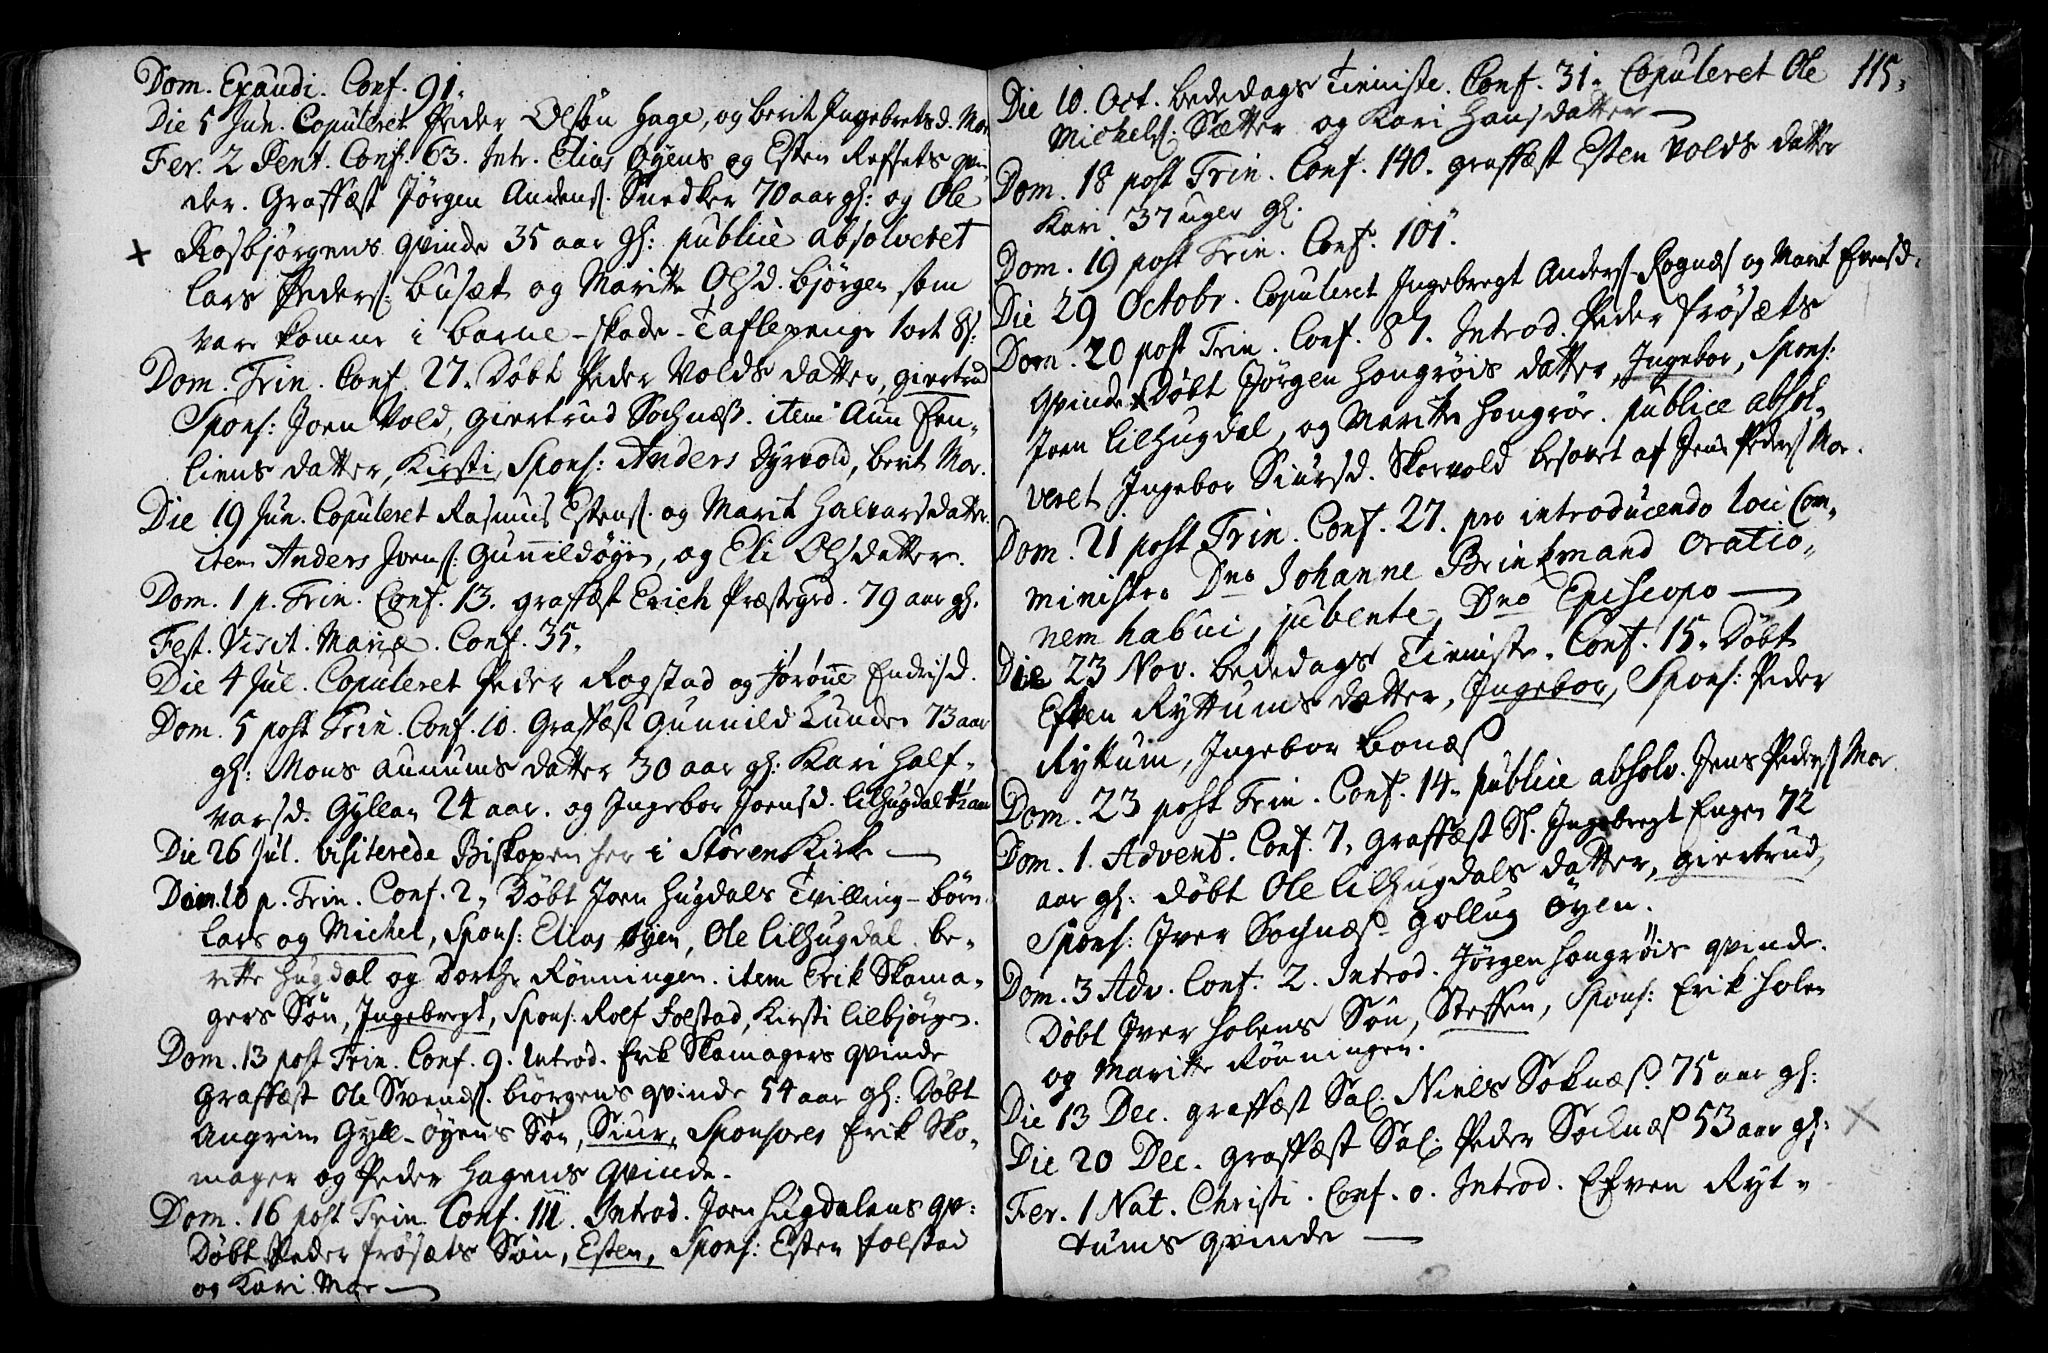 Dom. Exaudi. Conf. 91.
Die 5 Jun. Copuleret Peder Olsøn Hage, og Berit Ingebretsd. Moe
Fer. 2 Pent. Conf. 63. Intr. Elias Øyens og Esten Reffsets qvin-
der. Graffæst Jørgen Andersſ. Snedker 70 aar gl: og Ole
Rosbjørgens qvinde 35 aar gl: publicè absolveret
Lars Pedersſ: Busæt og Maritte Olsd. Bjørgen som
vare komne i barne-skade. Taflepenge 1ort 8s:
Dom. Trin. Conf. 27. Døbt Peder Volds datter, Giertrud
Spons: Joen Vold, Giertrud Sochnæss. item Aun Fen-
liens datter, Kirsti, Spons: Anders Dyrvold, Berit Moe.
Die 19 Jun. Copuleret Rasmus Estensſ. og Marit Halvarsdatter.
item Anders Joensſ: Gunnildøyen, og Eli Olsdatter.
Dom. 1 p. Trin. Conf. 13. Graffæst Erich Præstegrd. 79 aar gl.
Fest. Visit. Mariæ. Conf. 35.
Die 4 Jul. Copuleret Peder Rogstad og Jorønne Endrisd.
Dom. 5 post Trin. Conf. 10. Graffæst Gunnild Lunden 73 aar
gl: Mons Aunums datter 30 aar gl: Kari Half-
varsd. Gyllan 24 aar. og Ingebor Joensd. Lilhugdal
Die 26 Jul. visiterede Biskopen her i Støren Kirke —
Dom. 10 p. Trin. Conf. 2. Døbt Joen Hugdals Tvilling-børn
Lars og Michel, Spons: Elias Øyen, Ole Lilhugdal. Be-
ritte Hugdal og Dorthe Rønningen. item Erik Skoma-
gers Søn, Ingebregt, Spons: Rolf Folstad, Kirsti Lilbjørgen.
Dom. 13 post Trin. Conf. 9. Introd. Erik Skomagers qvinde
Graffæst Ole Svendsſ. Biørgens qvinde 54 aar gl: Døbt
Angrim Gyll-øyens Søn, Siur, Sponsores Erik Sko-
mager og Peder Hagens qvinde.
Dom. 16 post Trin. Conf. 111. Introd. Joen Hugdalens qv:
Døbt Peder Frøsæts Søn, Esten, Spons: Esten Folstad
og Kari Moe —
115.
Die 10. Oct. Bededags Tienniste. Conf. 31. Copuleret Ole
Michelsſ: Sætter og Kari Hansdatter —
Dom. 18 post Trin. Conf. 140. Graffæst Esten Volds datter
Kari 37 uger gl.
Dom. 19 post Trin. Conf. 101.
Die 29 Octobr. Copuleret Ingebregt Andersſ. Rognæs og Marit Efvensd.
Dom. 20 post Trin. Conf. 87. Introd. Peder Frøsæts
qvinde. Døbt Jørgen Hongrøis datter, Ingebor, Spons:
Joen Lilhugdal, og Maritte Hongrøe. publice absol-
veret Ingebor Siursd. Skorvold besovet af Jens Pedersſ Moe.
Dom. 21 post Trin. Conf. 27. pro introducendo loci Com-
ministro Dno Johanne Brinkmand Oratio-
nem habui, jubente Dno Episcopo —
Die 23 Nov. Bededags Tienniste. Conf. 15. Døbt
Efven Ryttums datter, Ingebor, Spons: Peder
Ryttum, Ingebor Bonæs
Dom. 23 post Trin. Conf. 14. publice absolv. Jens Pedersſ Moe.
Dom. 1. Advent. Conf. 7. Graffæst Sl. Ingebregt Engen 72
aar gl: Døbt Ole Lilhugdals datter, Giertrud,
Spons: Iver Sochnæs Gollug Øyen.
Dom. 3 Adv. Conf. 2. Introd. Jørgen Hongrøis qvinde.
Døbt Iver Holens Søn, Steffen, Spons: Erik Holen
og Maritte Rønningen.
Die 13 Dec. Graffæst Sal. Niels Soknæs 75 aar gl:
Die 20 Dec. Graffæst Sal: Peder Socknæs 53 aar gl:
Fer. 1 Nat. Christi. Conf. 0. Introd. Efven Ryt-
tums qvinde —